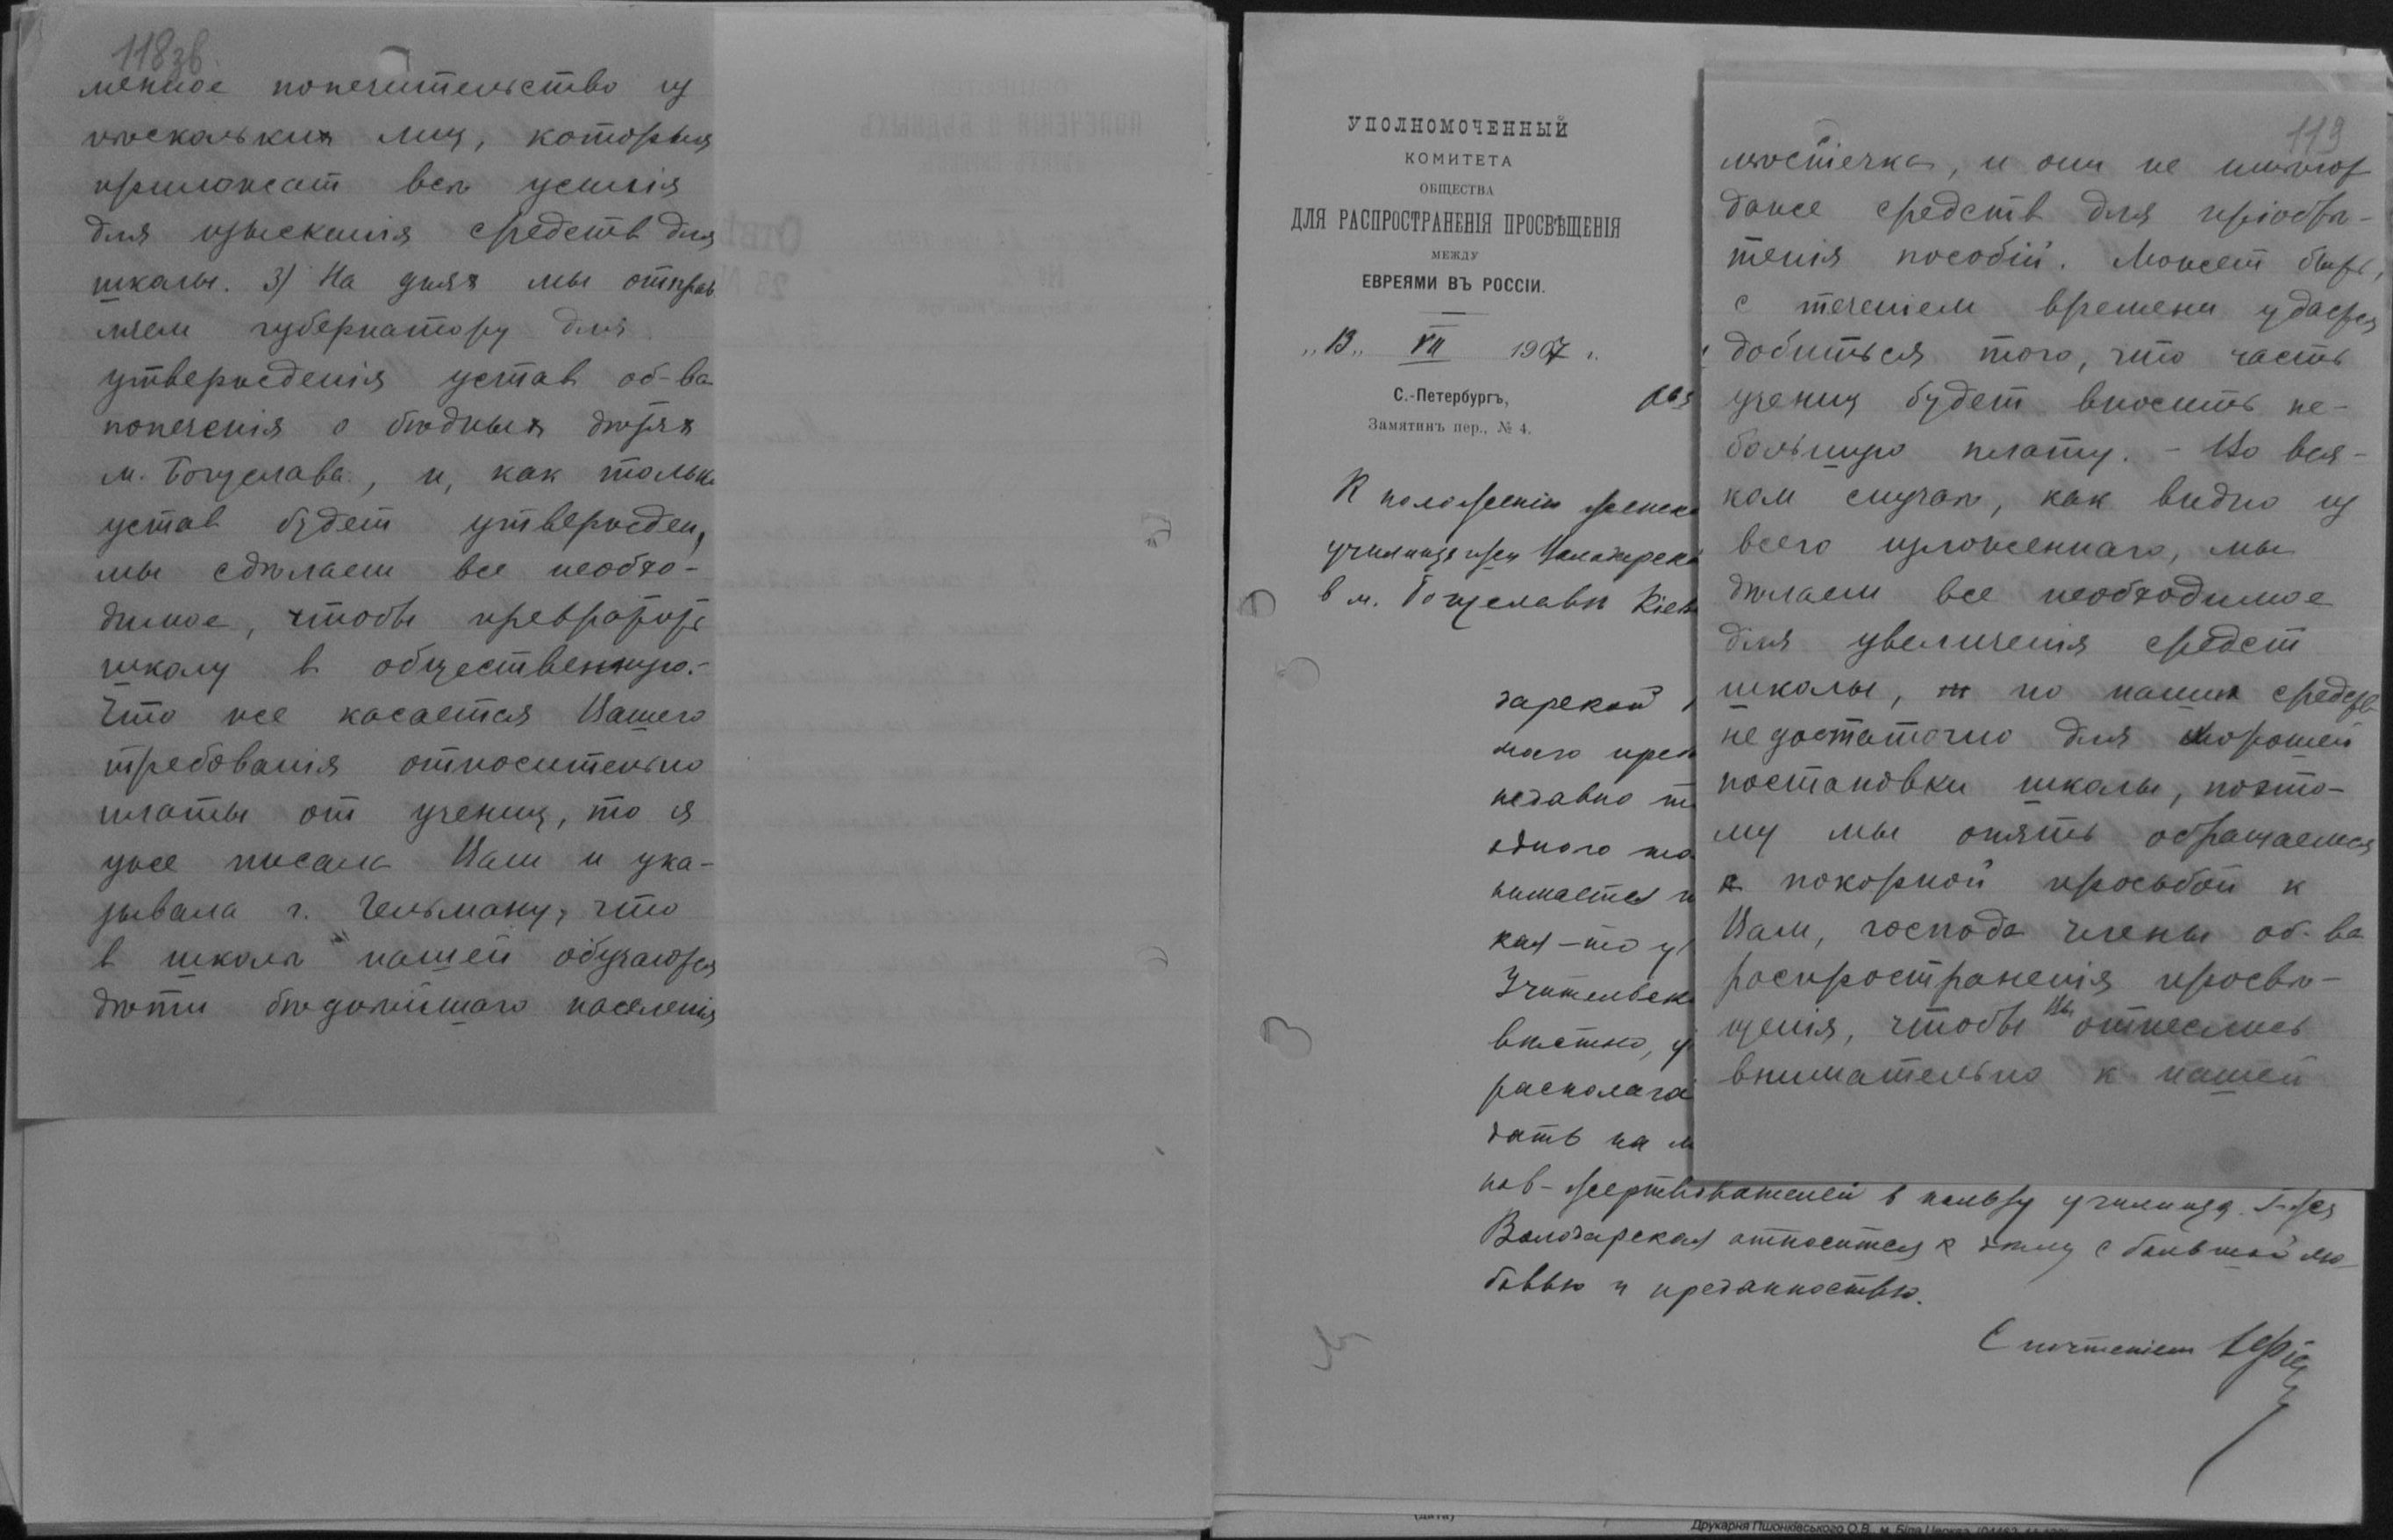 118зв
менное попечительство из
нѣскольких лиц, которыя
приложат всѣ усилія
для изысканія средств для
школы. 3) На днях мы отправ
ляем губернатору для
утвержденія устав об-ва
попеченія о бѣдных дѣтях
м. Богуслава, и, как только
устав будет утвержден,
мы сдѣлаем все необхо-
димое, чтобы превратить
школу в общественную.-
Что же касается Вашего
требованія относительно
платы от учениц, то я
уже писала Вам и ука-
зывала г. Гельману, что
в школѣ нашей обучаются
дѣти бѣднѣйшаго населенія
УПОЛНОМОЧЕННЫЙ
КОМИТЕТА
ОБЩЕСТВА
ДЛЯ РАСПРОСТРАНЕНІЯ ПРОСВѢЩЕНІЯ
МЕЖДУ
ЕВРЕЯМИ ВЪ РОССІИ.
„13„ VII 1907 г.
С.-Петербургъ,
Замятинъ пер., № 4.
К положенію женска
училища г-жи Володарска
в м. Богуславѣ Кіев
дарской
маго
недавно
одного
нимается
кая-то
Учительск
вѣстно,
располага
дать на
нов-жертвователей в пользу училища. Г-жа
Володарская относится к дѣлу с большой лю-
бовью и преданностью.
С почтеніем
119
мѣстечка, и они не имѣют
даже средств для пріобрѣ-
тенія пособій. Может быть,
с теченіем времени удастся
добиться того, что часть
учениц будет вносить не-
большую плату. - Во вся-
ком случаѣ, как видно из
всего изложеннаго, мы
дѣлаем все необходимое
для увеличенія средств
школы, но наших средств
недостаточно для хорошей
постановки школы, поэто-
му мы опять обращаемся
с покорной просьбой к
Вам, господа члены об-ва
распространенія просвѣ-
щенія, чтобы Вы отнеслись
внимательно к нашей
(дата)
Друкарня Пшонківського О.В. м. Біла Церква